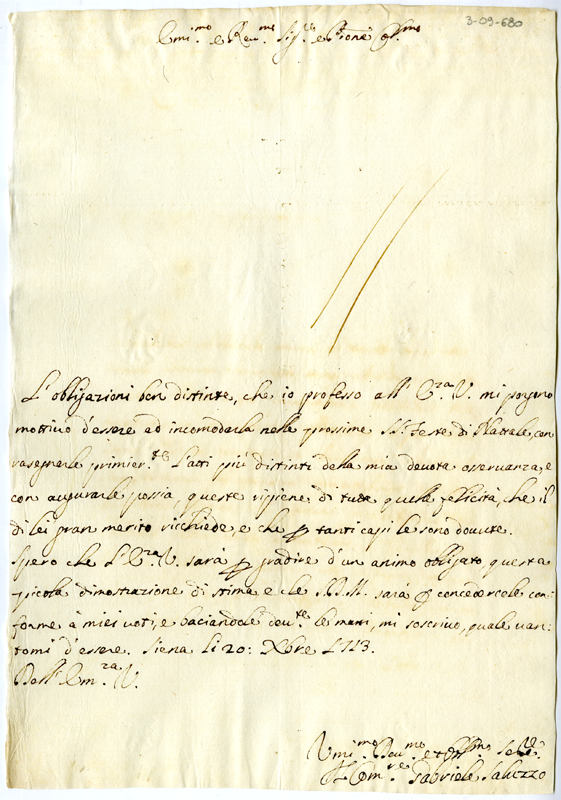 3-09-680
Emi.mo e Reu.mo Sig.re e Prone Col.mo
L'obligazioni ben distinte, che io professo all' E.za V. mi porgono
mottiuo d'essere ad incomodarla nelle prossime SS. Feste di Nattale, con
rasegnarle primier.te l'atti più distinti della mia deuota osseruanza, e
con augurarle possia, queste ripiene di tutte quelle felicità, che il
di lei gran merito richiede, e che p tanti capi le sono douute.
Spero che l'E.za V. sarà p gradire d'un animo obligato questa
picola dimostrazione di stima e che S.D.M. sarà p concedercele con=
forme à miei uoti, e baciandole deu.te le mani, mi soscriuo, quale uan=
tomi d'essere. Siena li 20: Xbre 1713.
Dell' Em.za V.
Vmi.mo Deu.mo et Obl.mo Se.re
Com.re Gabriele Saluzzo